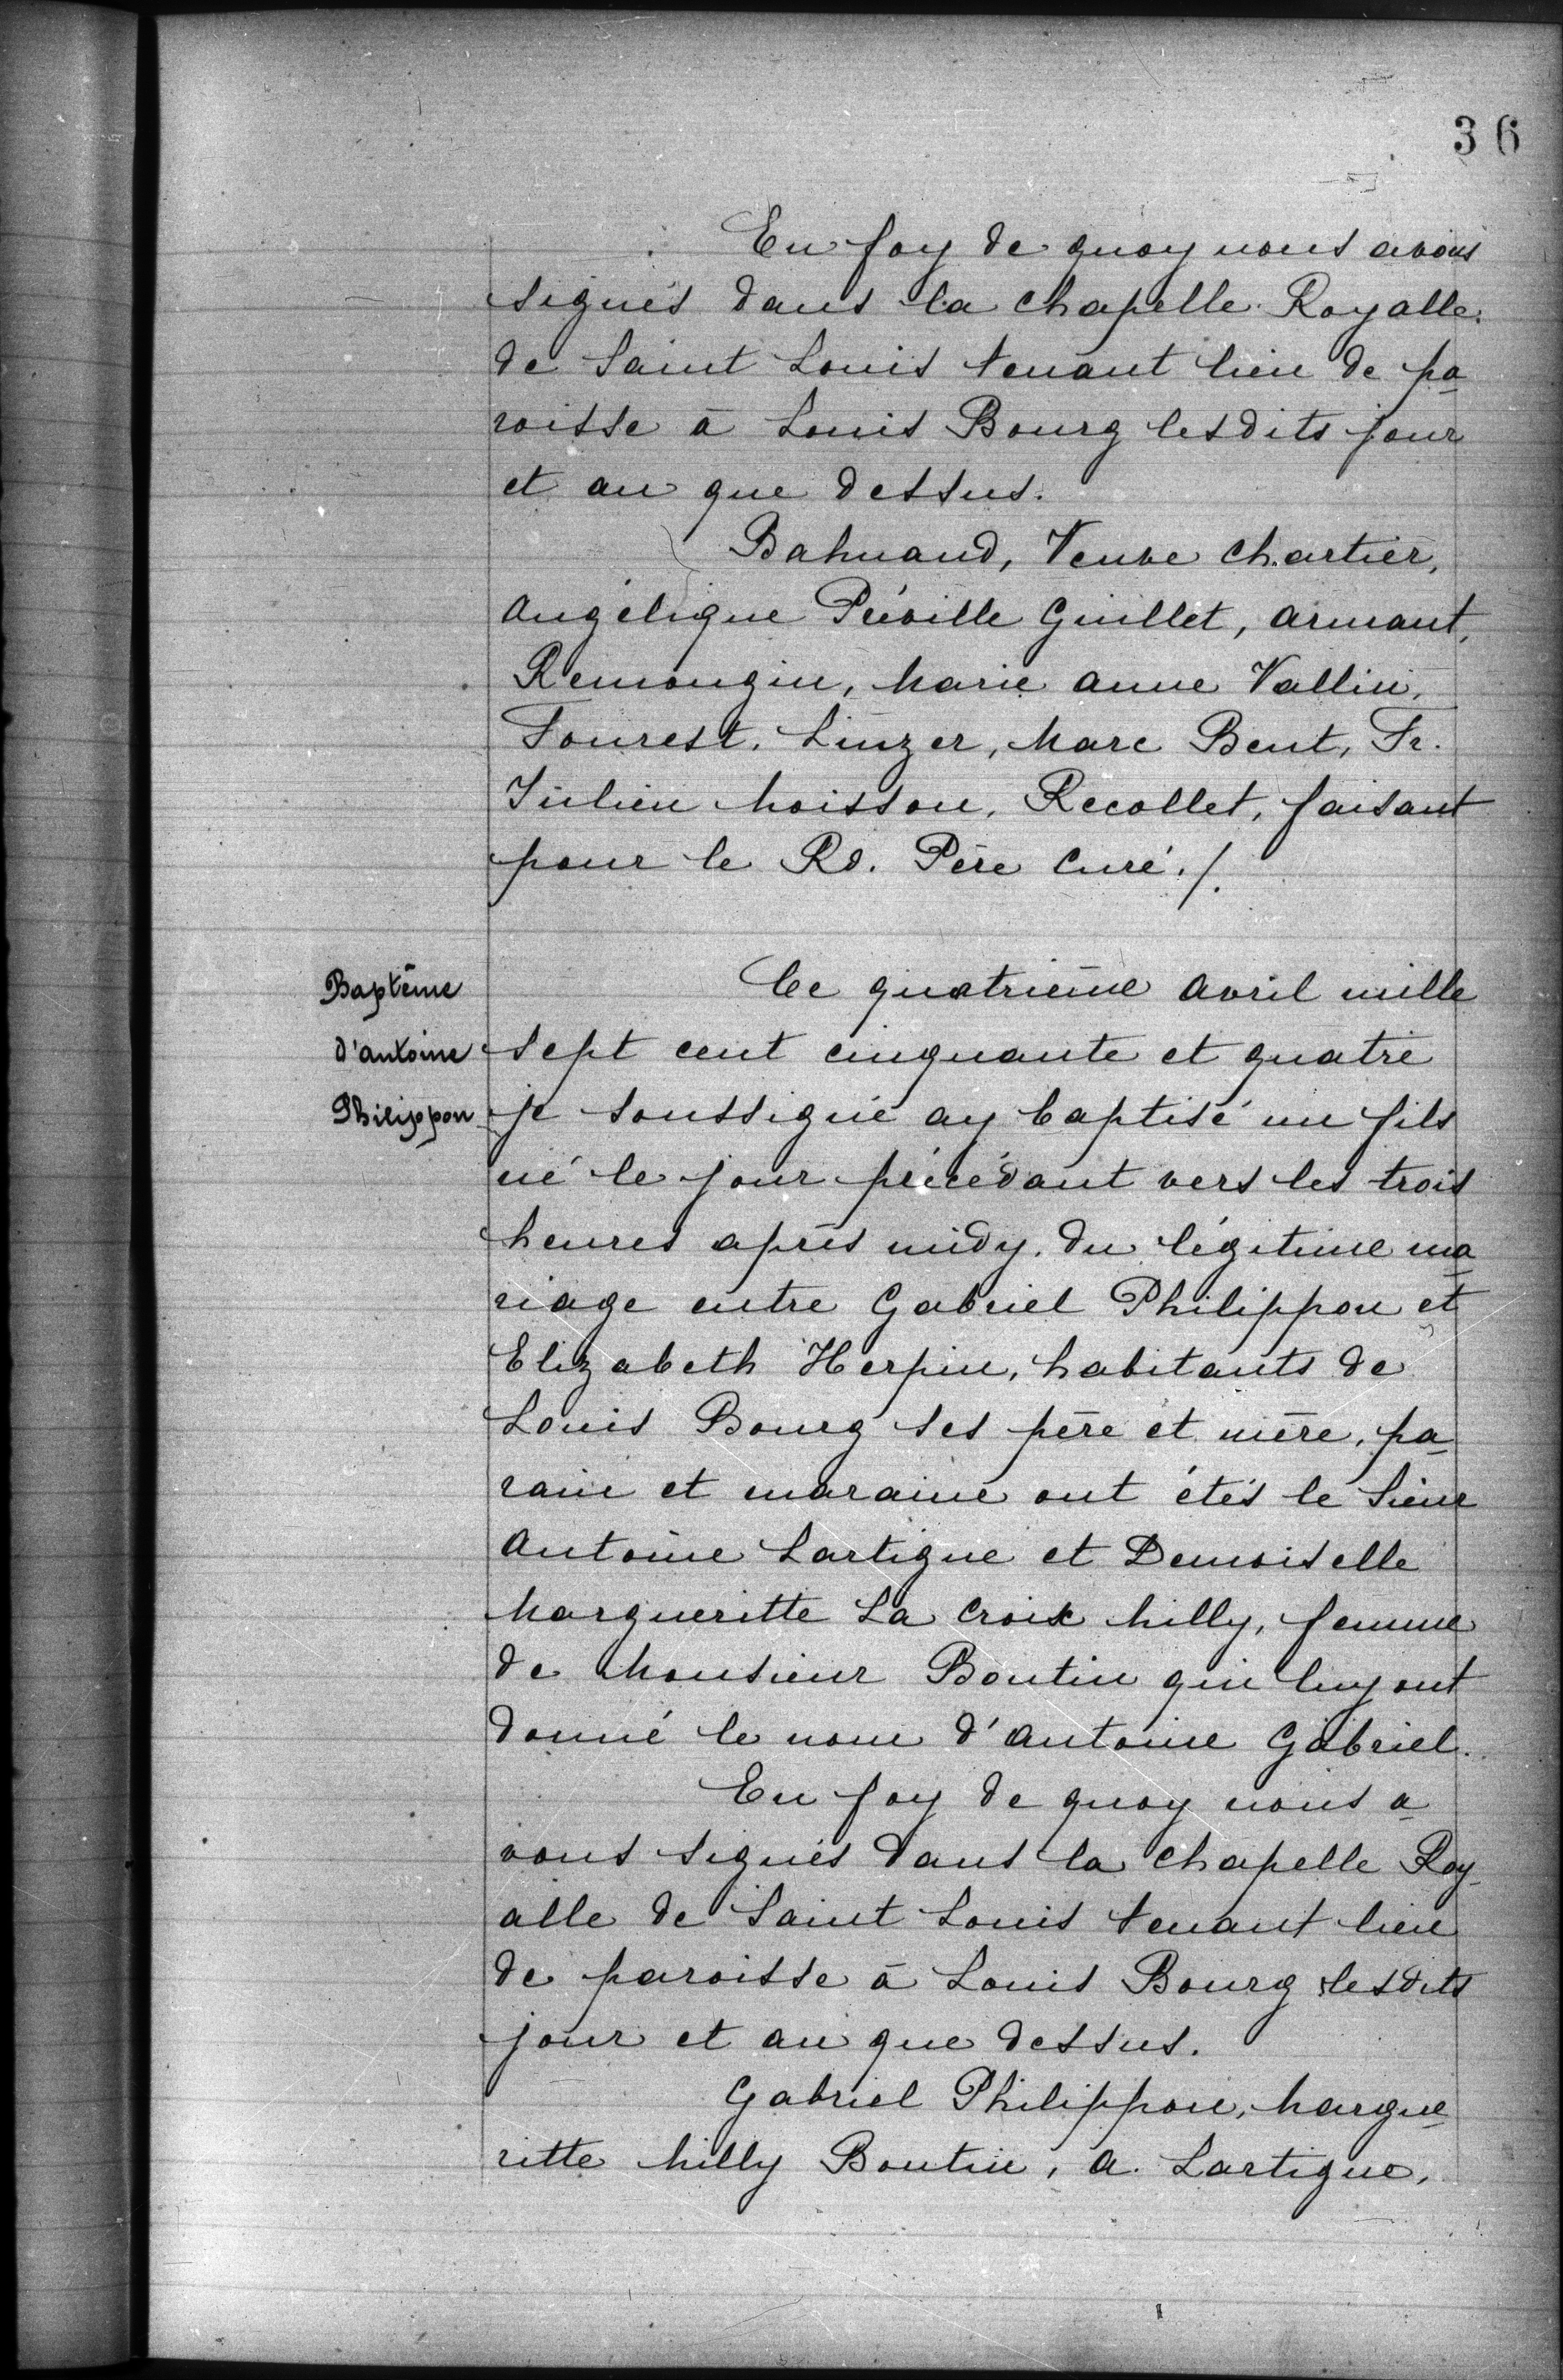 36
En foy de quoy nous avons
signés dans la chapelle Royalle
de Saint Louis tenant lieu de pa
roisse à Louis Bourg lesdits jour
et an que dessus.
Bahuaud, Veuve Chartier,
Angélique Préville Guillet, Armant,
Remongin, Marie Anne Vallin,
Fourest, Linzer, Marc Bent, Fr.
Julien Moisson, Recollet, faisant
pour le Rd. Père Curé./.
Baptême
d'Antoine
Philippon
Ce quatrième Avril mille
sept cent cinquante et quatre
je soussigné ay baptisé un fils
né le jour précédant vers les trois
heures après midy, du légitime ma
riage entre Gabriel Philippon et
Elizabeth Herpin, habitants de
Louis Bourg ses père et mère, pa
rain et maraine ont étés le Sieur
Antoine Lartigue et Demoiselle
Margueritte La Croix Milly, femme
de Monsieur Boutin qui luy ont
donné le nom d'Antoine Gabriel.
En foy de quoy nous a
vons signés dans la chapelle Roy
alle de Saint Louis tenant lieu
de paroisse à Louis Bourg lesdits
jour et an que dessus.
Gabriel Philippon, Margue
ritte Milly Boutin, A. Lartigue,